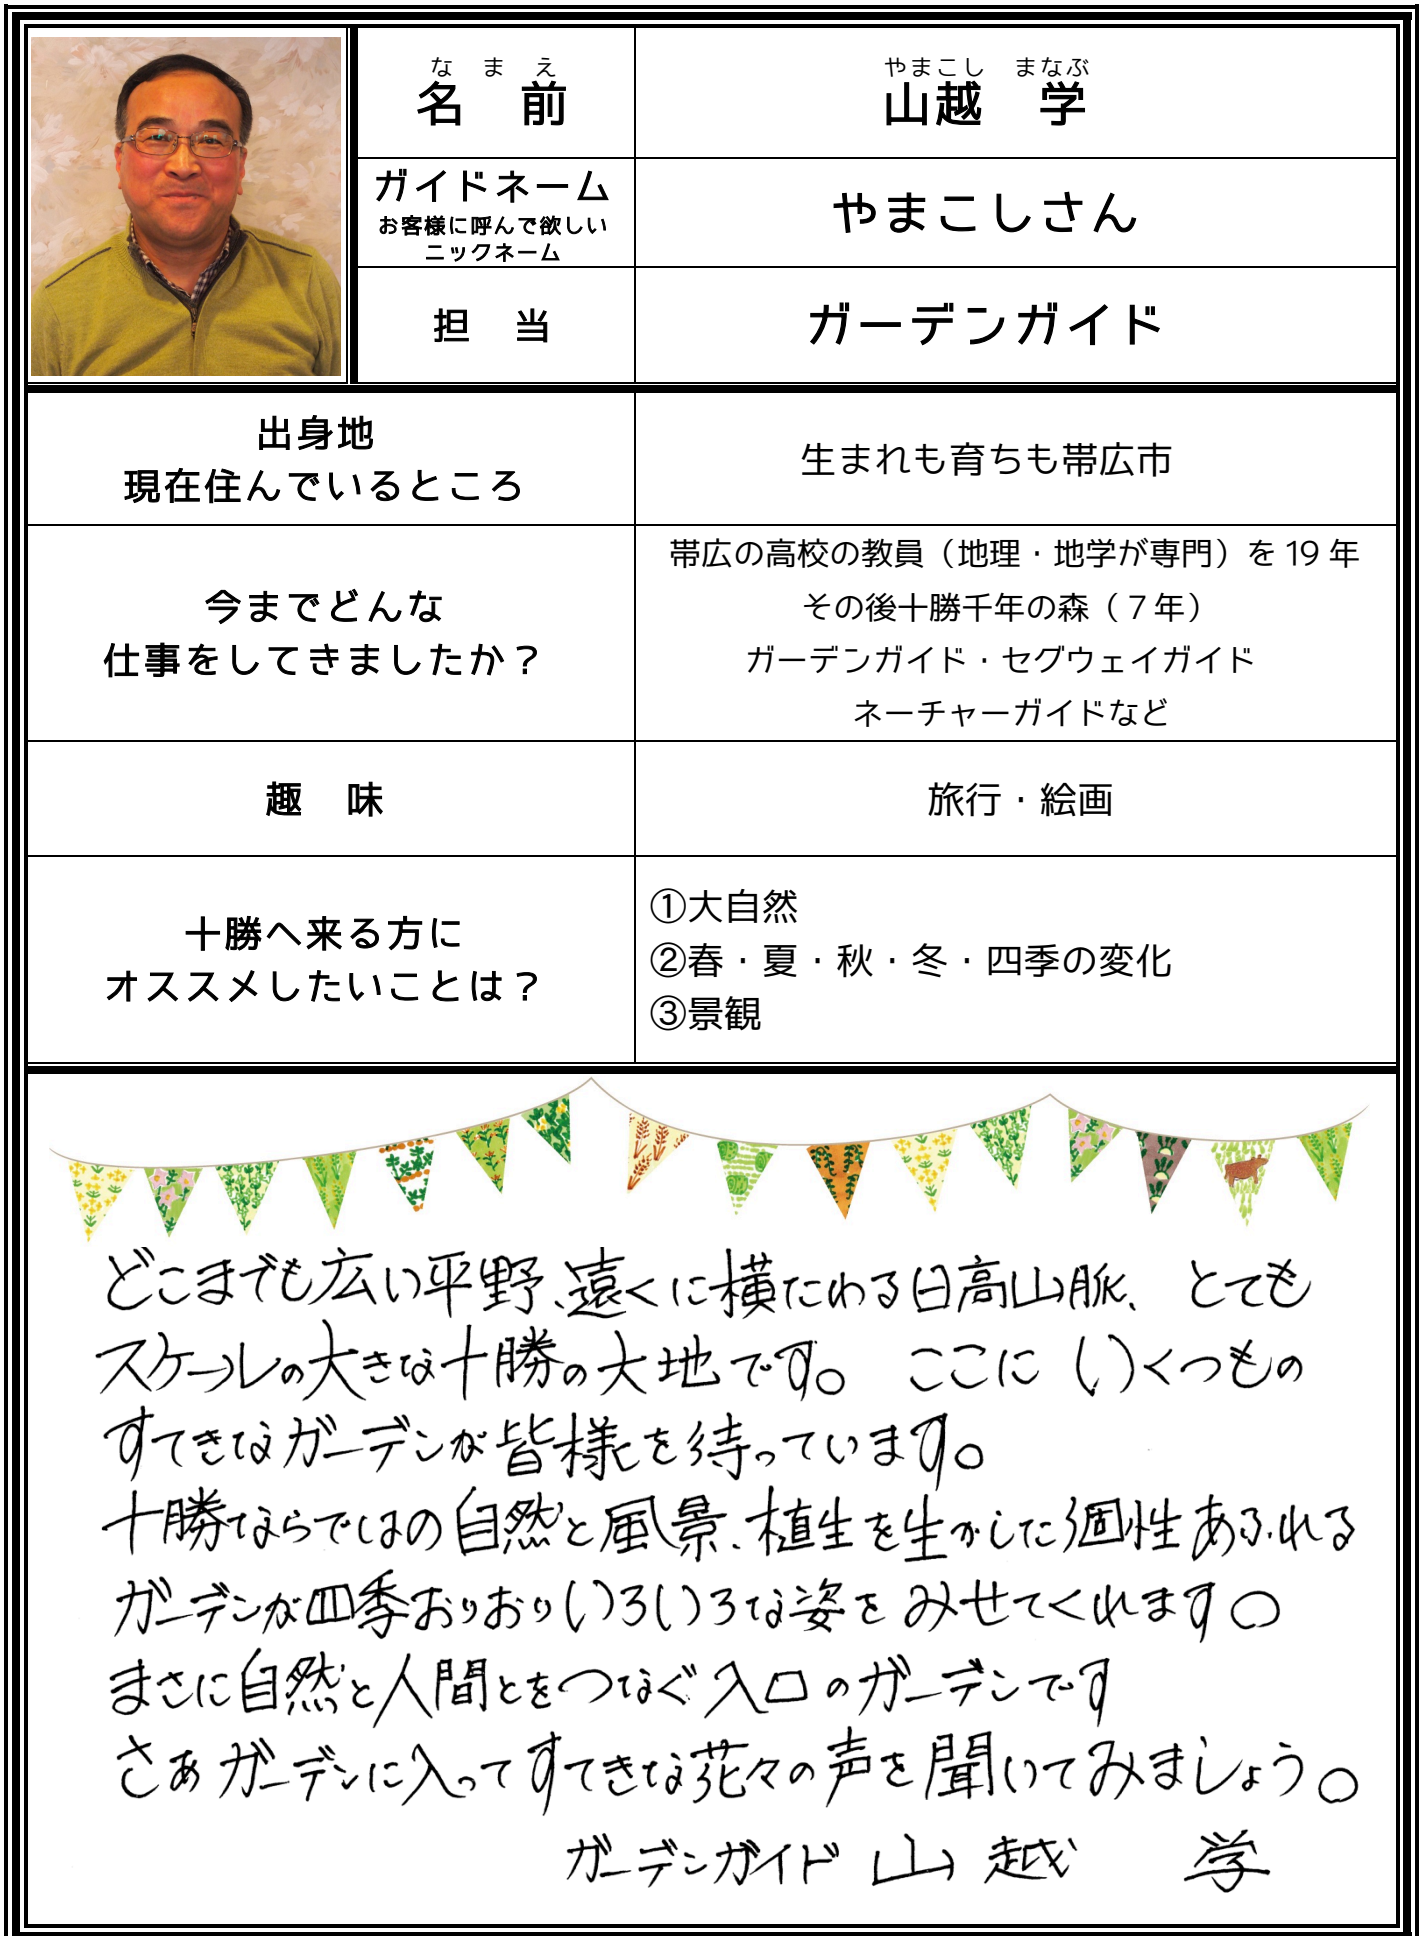 な　ま　え
名　前
やまこし　まなぶ
山越　学
ガイドネーム
お客様に呼んで欲しい
ニックネーム
やまこしさん
担　当
ガーデンガイド
出身地
現在住んでいるところ
生まれも育ちも帯広市
今までどんな
仕事をしてきましたか？
帯広の高校の教員（地理・地学が専門）を 19 年
その後十勝千年の森（７年）
ガーデンガイド・セグウェイガイド
ネーチャーガイドなど
趣　味
旅行・絵画
十勝へ来る方に
オススメしたいことは？
①大自然
②春・夏・秋・冬・四季の変化
③景観
どこまでも広い平野、遠くに横たわる日高山脈、とても
スケールの大きな十勝の大地です。ここに いくつもの
すてきなガーデンが皆様を待っています。
十勝ならではの自然と風景、植生を生かした個性あふれる
ガーデンが四季おりおりいろいろな姿をみせてくれます。
まさに自然と人間とをつなぐ入口のガーデンです
さあガーデンに入ってすてきな花々の声を聞いてみましょう。
ガーデンガイド 山越　学